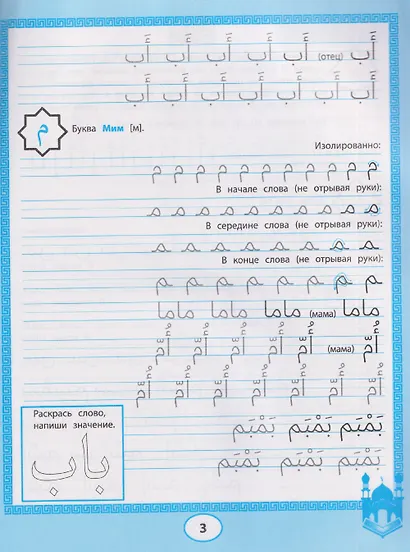 أَب (отец) أَب أَب أَب أَب أَب
أَب أَب أَب أَب أَب أَب
م Буква Мим [м].
Изолированно:
م م م م م م م م م م م
В начале слова (не отрывая руки):
مـ مـ مـ مـ مـ مـ مـ مـ مـ مـ
В середине слова (не отрывая руки):
ـمـ ـمـ ـمـ ـمـ ـمـ ـمـ ـمـ ـمـ
В конце слова (не отрывая руки):
ـم ـم ـم ـم ـم ـم ـم ـم
ماما (мама) ماما ماما ماما
أُمّ (мама) أُمّ أُمّ أُمّ أُمّ أُمّ
أُمّ أُمّ أُمّ أُمّ أُمّ أُمّ
بَمْبَم بَمْبَم بَمْبَم
بَمْبَم بَمْبَم بَمْبَم
Раскрась слово,
напиши значение.
باب
3